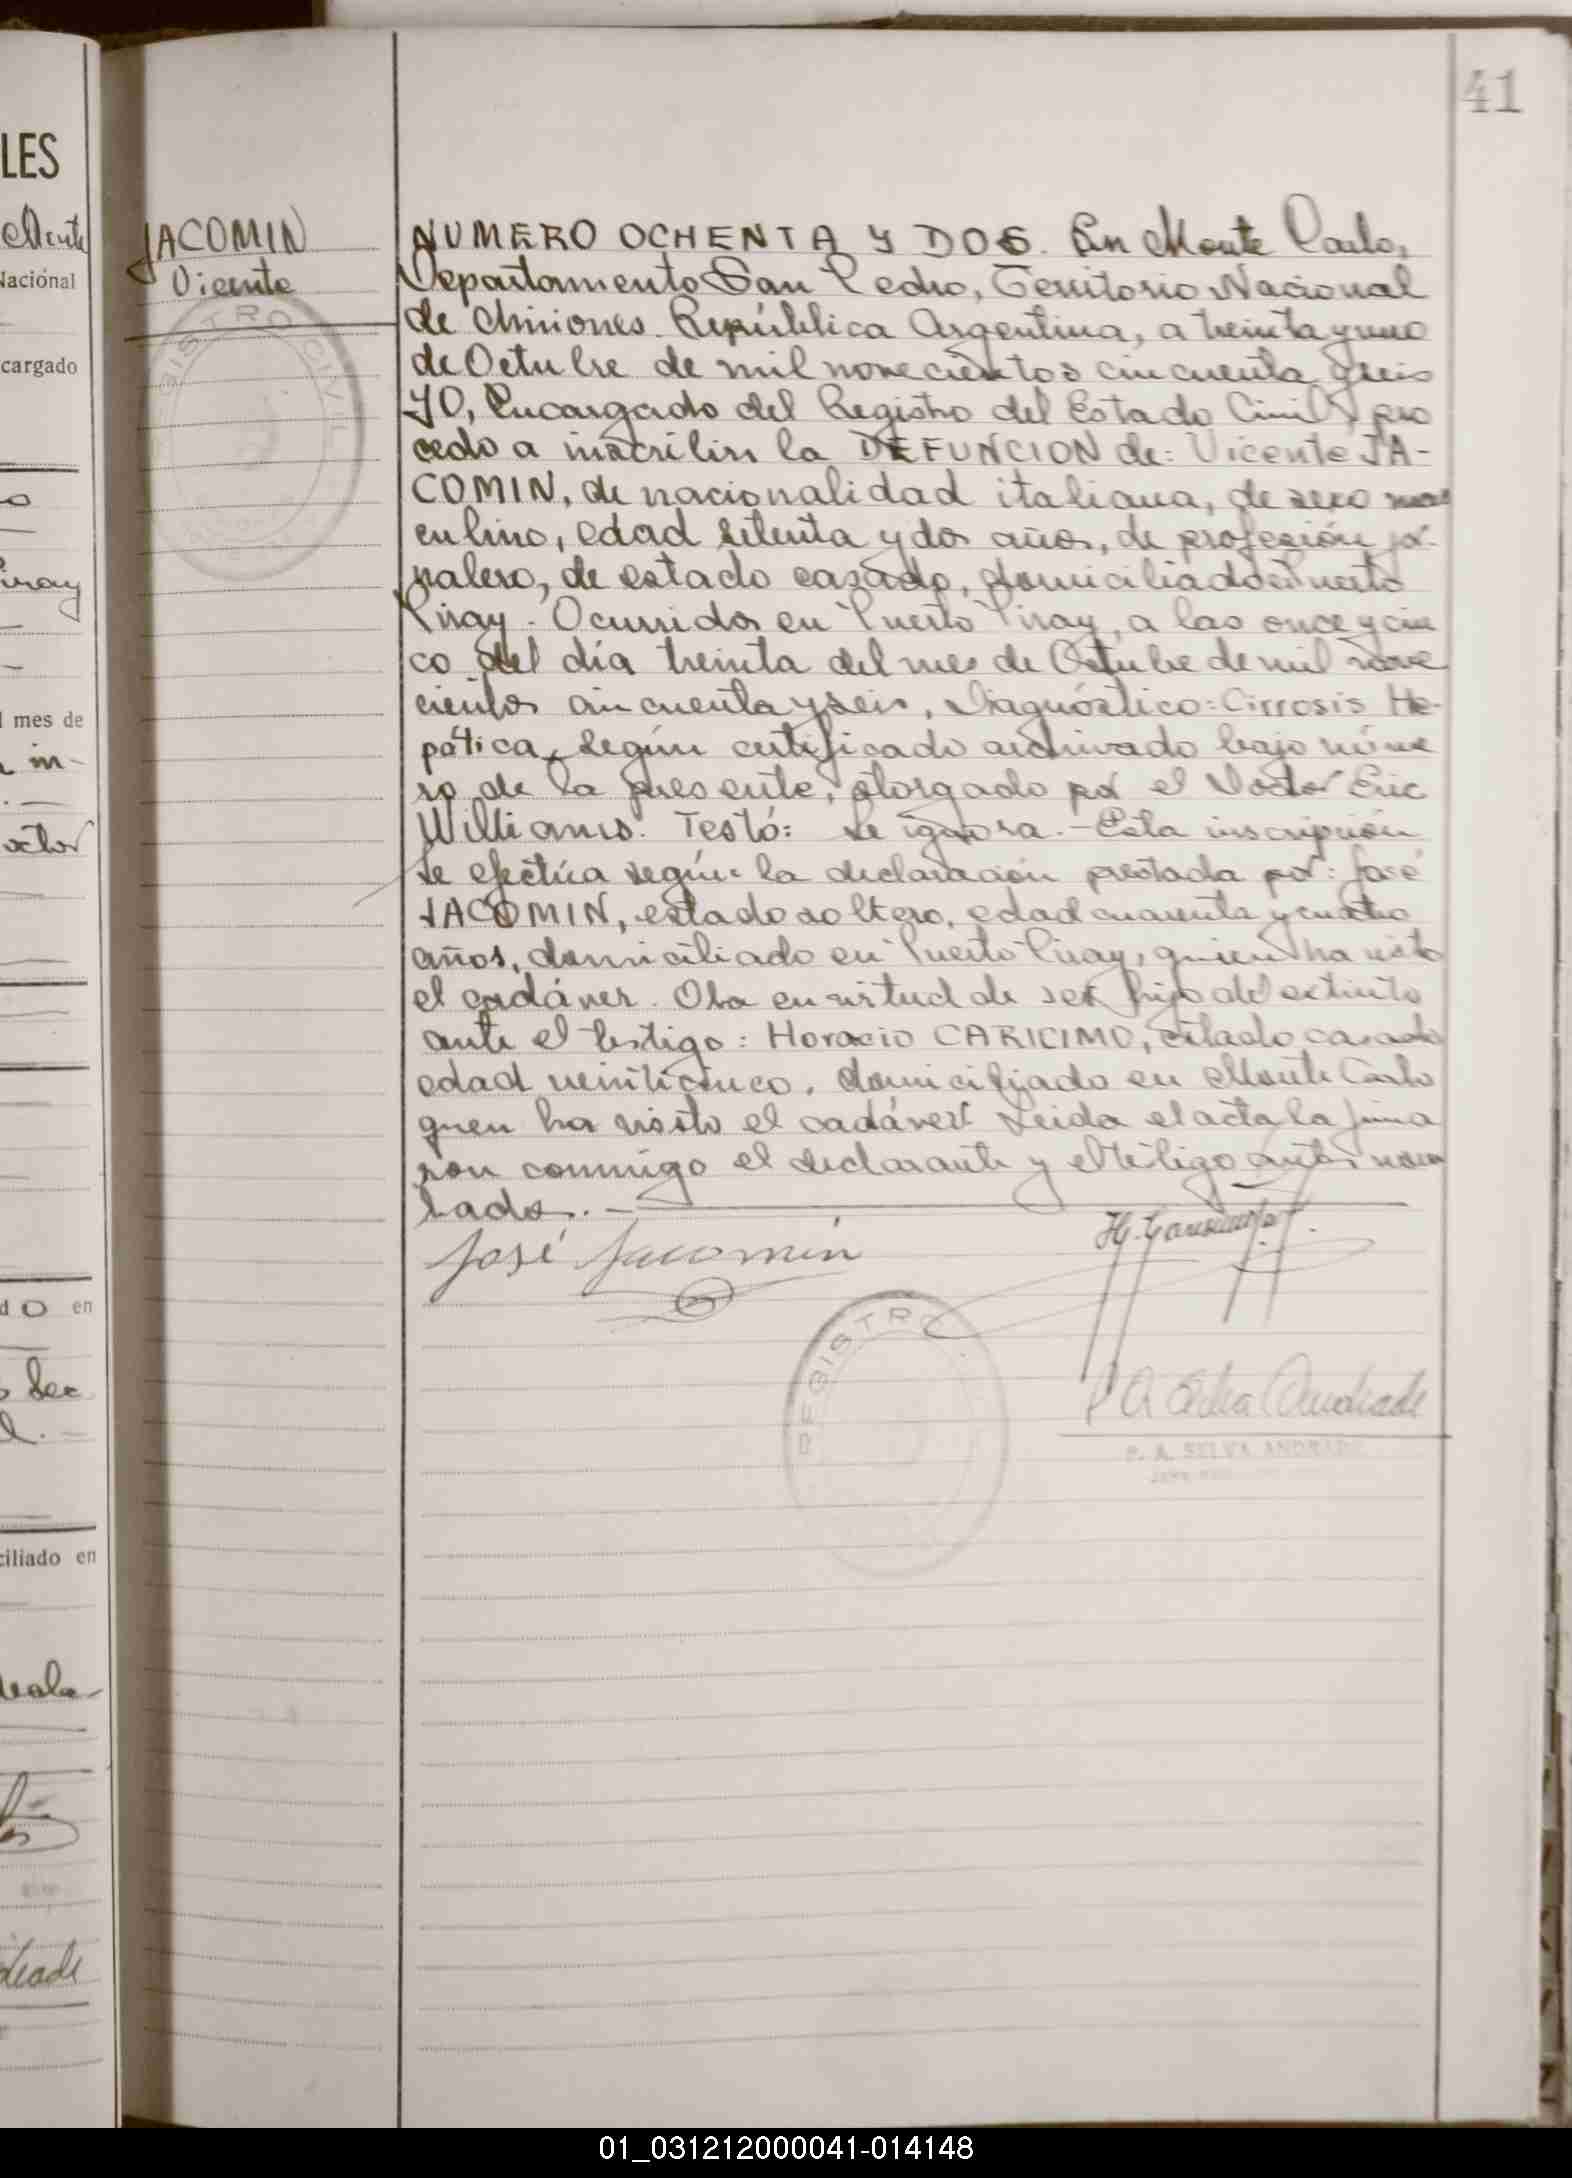 41
LES
Monte
Nacional
cargado
l mes de
in-
octor
do en
ciliado en
JACOMIN
Vicente
REGISTRO CIVIL
NUMERO OCHENTA Y DOS. En Monte Carlo,
Departamento San Pedro, Territorio Nacional
de Misiones. República Argentina, a treinta y uno
de Octubre de mil novecientos cincuenta y seis
YO, Encargado del Registro del Estado Civil, pro
cedo a inscribir la DEFUNCION de: Vicente JA-
COMIN, de nacionalidad italiana, de sexo mas
culino, edad setenta y dos años, de profesión jor-
nalero, de estado casado, domiciliado en Puerto
Piray. Ocurrida en Puerto Piray, a las once y cin
co del día treinta del mes de Octubre de mil nove
cientos cincuenta y seis, Diagnóstico: Cirrosis He-
pática, según certificado archivado bajo núme
ro de la presente, otorgado por el Doctor Eric
Williams. Testó: se ignora.- Esta inscripción
se efectúa según la declaración prestada por: José
JACOMIN, estado soltero, edad cuarenta y cuatro
años, domiciliado en Puerto Piray, quien ha visto
el cadáver. Obra en virtud de ser hijo del extinto
ante el testigo: Horacio CARICIMO, estado casado
edad veinticinco, domiciliado en Monte Carlo
quen ha visto el cadáver. Leida el acta la firma
ron conmigo el declarante y el testigo antes nom
brados.-
José Jacomin
REGISTRO
P A Selva Andrade
P. A. SELVA ANDRADE
01_031212000041-014148